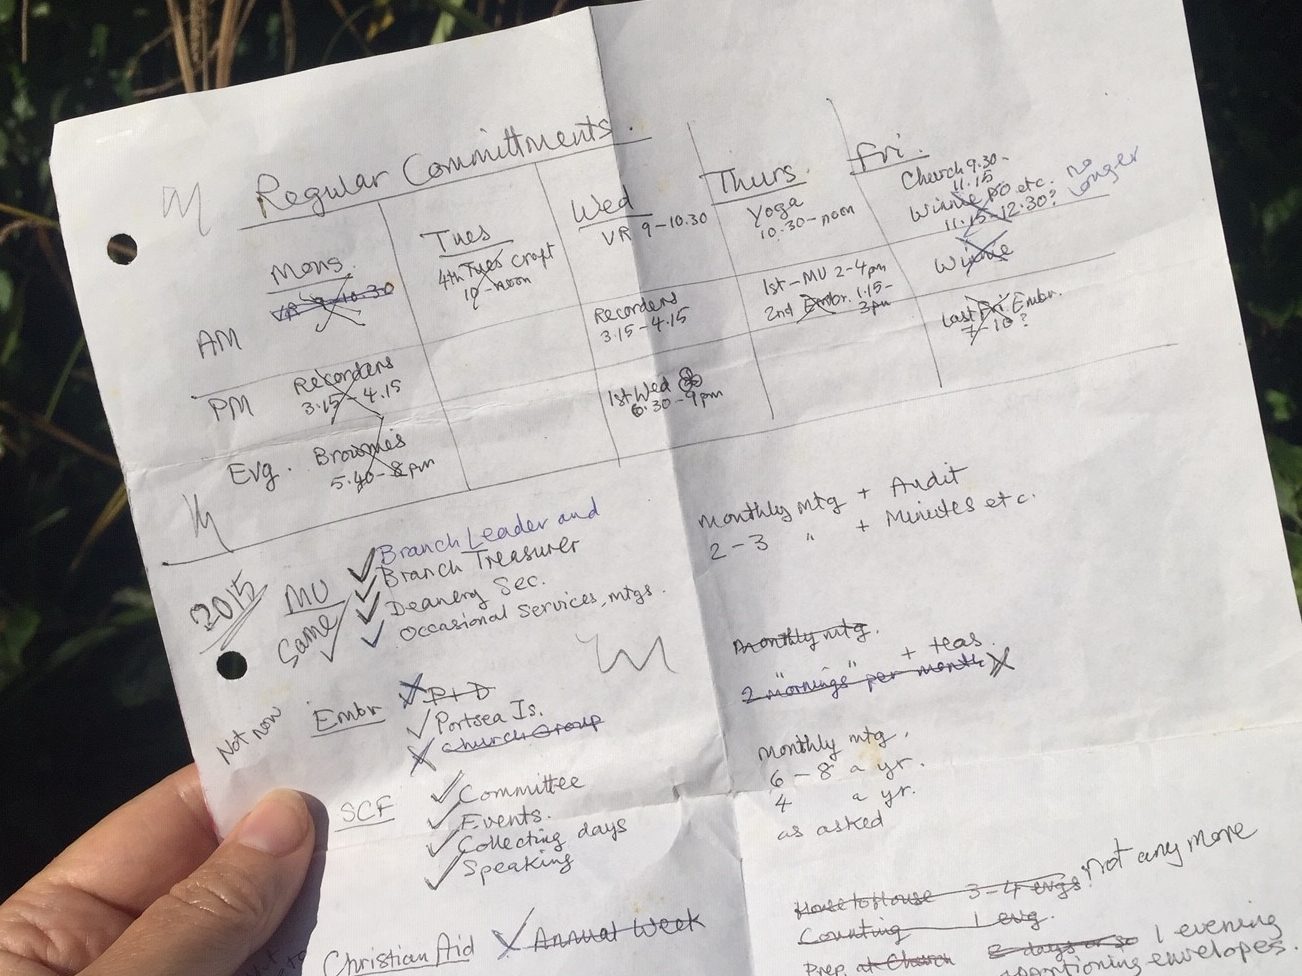 Regular Committments.
Mons.
Tues
Wed
Thurs.
Fri.
AM
VR 9-10.30
4th Tues Croft
10-noon
VR 9-10.30
Yoga
10.30-noon
Church 9.30-
11.15
Winnie PO etc.
11.15-12.30?
no
longer
PM
Recorders
3.15-4.15
Recorders
3.15-4.15
1st-MU 2-4pm
2nd Embr. 1.15-
3pm
Winnie
Evg.
Brownies
5.40-8pm
1st Wed
6.30-9pm
Last Fri Embr.
7-10?
2015
MU
Same
Branch Leader and
Branch Treasurer
Deanery Sec.
Occasional Services, mtgs.
Monthly mtg + Audit
2-3 " + Minutes etc.
Not now
Embr
P+D
Portsea Is.
Church Group
Monthly mtg.
" " + teas.
2 mornings per month
SCF
Committee
Events.
Collecting days
Speaking
Monthly mtg.
6-8 a yr.
4 a yr.
as asked
Christian Aid
Annual Week
House to House 3-4 evgs. not any more
Counting 1 evg.
Prep. at Church 2 days or so 1 evening
envelopes.